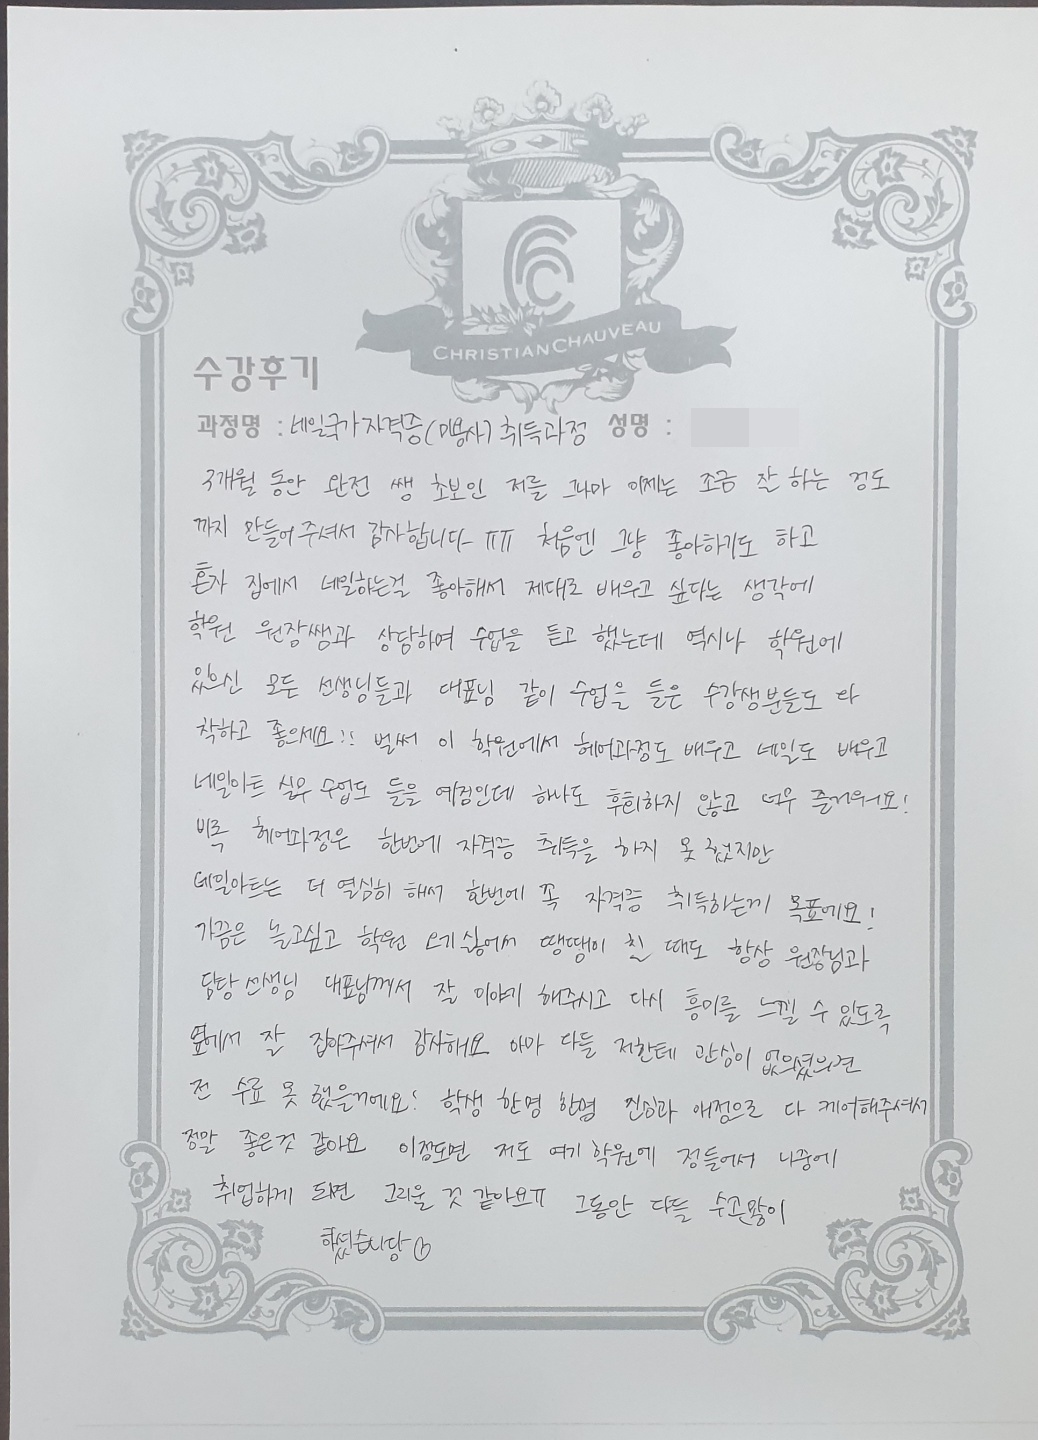 CHRISTIAN CHAUVEAU
수강후기
과정명 : 네일국가자격증(미용사) 취득과정 성명 :
3개월 동안 완전 쌩 초보인 저를 그나마 이제는 조금 잘 하는 정도
까지 만들어주셔서 감사합니다ㅠㅠ 처음엔 그냥 좋아하기도 하고
혼자 집에서 네일하는걸 좋아해서 제대로 배우고 싶다는 생각에
학원 원장쌤과 상담하여 수업을 듣고 했는데 역시나 학원에
있으신 모든 선생님들과 대표님 같이 수업을 들은 수강생분들도 다
착하고 좋으세요!! 벌써 이 학원에서 헤어과정도 배우고 네일도 배우고
네일아트 실무 수업도 들을 예정인데 하나도 후회하지 않고 너무 즐거워요!
비록 헤어과정은 한번에 자격증 취득을 하지 못했지만
네일아트는 더 열심히 해서 한번에 쏙 자격증 취득하는게 목표에요!
가끔은 놀고싶고 학원 오기 싫어서 땡땡이 친 때도 항상 원장님과
담당 선생님 대표님께서 잘 이야기 해주시고 다시 흥미를 느낄 수 있도록
옆에서 잘 잡아주셔서 감사해요 아마 다들 저한테 관심이 없으셨으면
전 수료 못 했을거에요! 학생 한명 한명 진심과 애정으로 다 케어해주셔서
정말 좋은것 같아요 이정도면 저도 여기 학원에 정들어서 나중에
취업하게 되면 그리울 것 같아요ㅠ 그동안 다들 수고많이
하셨습니당